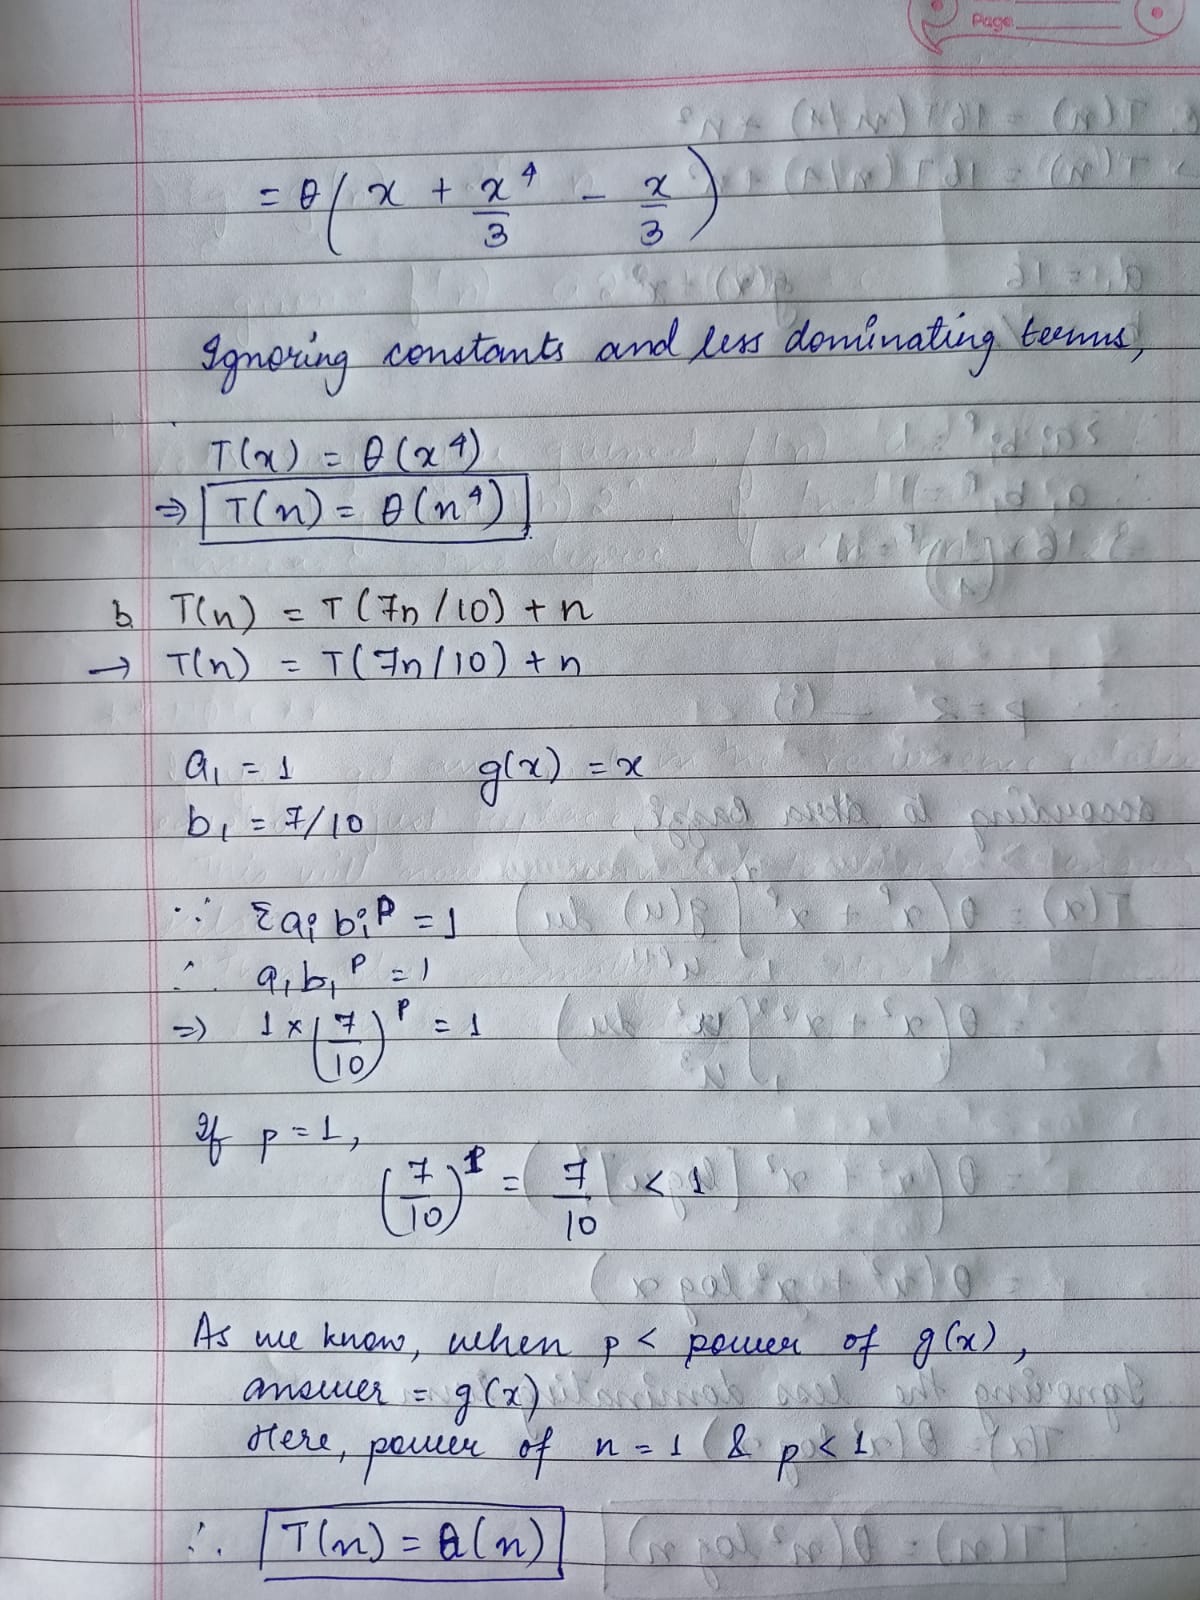 Page
= θ( x + x⁴/3 - x/3 )
Ignoring constants and less dominating terms,
T(x) = θ(x⁴)
⇒ T(n) = θ(n⁴)
b. T(n) = T(7n/10) + n
→ T(n) = T(7n/10) + n
a₁ = 1 g(x) = x
b₁ = 7/10
∵ Σaᵢbᵢᵖ = 1
∴ a₁b₁ᵖ = 1
⇒ 1 × (7/10)ᵖ = 1
If p = 1,
(7/10)¹ = 7/10 < 1
As we know, when p < power of g(x),
answer = g(x)
Here, power of n = 1 & p < 1
∴ T(n) = θ(n)